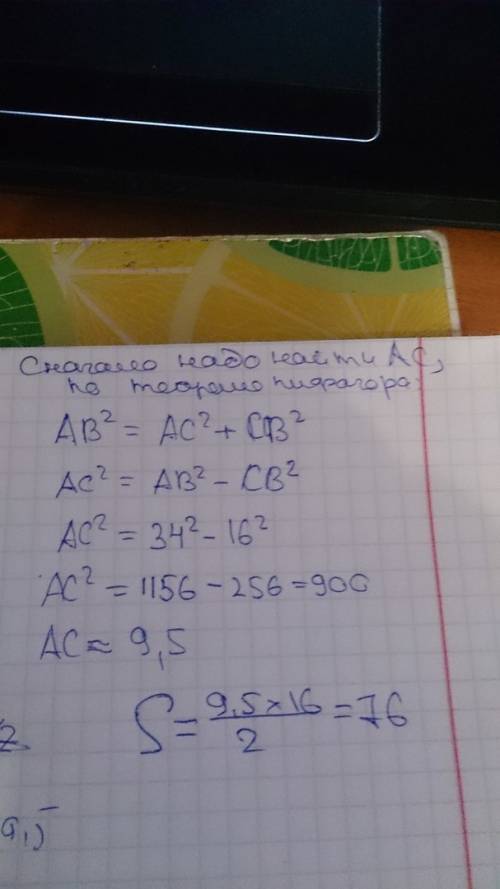 Сначало надо найти AC,
по теореме пифагора:
AB² = AC² + CB²
AC² = AB² - CB²
AC² = 34² - 16²
AC² = 1156 - 256 = 900
AC ≈ 9,5
S = 9,5×16 / 2 = 76